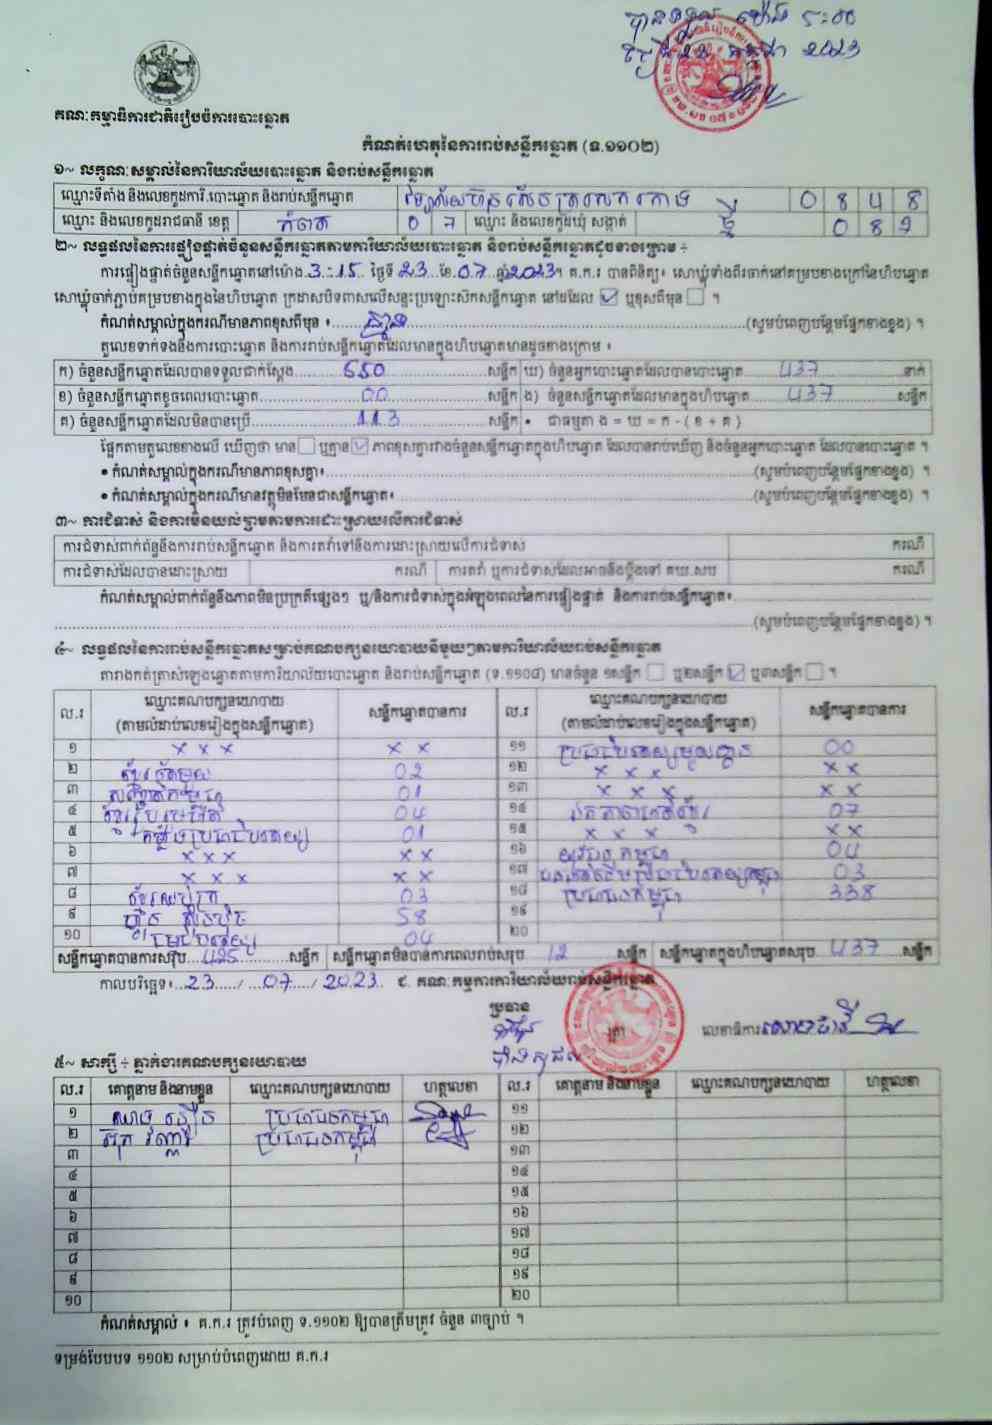 បានទទួល ម៉ោង ៥:០០
ថ្ងៃទី ២៣ កក្កដា ២០២៣
គណៈកម្មាធិការជាតិរៀបចំការបោះឆ្នោត
កំណត់ហេតុនៃការរាប់សន្លឹកឆ្នោត (ទ.១១០២)
១~ លក្ខណៈសម្គាល់នៃការិយាល័យបោះឆ្នោត និងរាប់សន្លឹកឆ្នោត
ឈ្មោះទីតាំង និងលេខកូដការិ.បោះឆ្នោត និងរាប់សន្លឹកឆ្នោត វិទ្យាល័យហ៊ុន សែន ត្រសេក កោង 0 8 4 8
ឈ្មោះ និងលេខកូដរាជធានី ខេត្ត កំពត 0 7 ឈ្មោះ និងលេខកូដឃុំ សង្កាត់ ថ្មី 0 8 2
២~ លទ្ធផលនៃការផ្ទៀងផ្ទាត់ចំនួនសន្លឹកឆ្នោតតាមការិយាល័យបោះឆ្នោត និងរាប់សន្លឹកឆ្នោតដូចខាងក្រោម ÷
ការផ្ទៀងផ្ទាត់ចំនួនសន្លឹកឆ្នោតនៅម៉ោង 3:15 ថ្ងៃទី 23 ខែ 07 ឆ្នាំ 2023។ គ.ក.រ បានពិនិត្យ៖ សោឃ្លុំទាំងពីរចាក់នៅគម្របខាងក្រៅនៃហិបឆ្នោត
សោឃ្លុំចាក់ភ្ជាប់គម្របខាងក្នុងនៃហិបឆ្នោត ក្រដាសបិទពាសលើសន្ទះប្រឡោះសឹកសន្លឹកឆ្នោត នៅដដែល ☑ ឬខុសពីមុន ☐ ។
កំណត់សម្គាល់ក្នុងករណីមានភាពខុសពីមុន ៖ គ្មាន (សូមបំពេញបន្ថែមផ្នែកខាងខ្នង) ។
តួលេខទាក់ទងនឹងការបោះឆ្នោត និងការរាប់សន្លឹកឆ្នោតដែលមានក្នុងហិបឆ្នោតមានដូចខាងក្រោម ៖
ក) ចំនួនសន្លឹកឆ្នោតដែលបានទទួលជាក់ស្តែង 550 សន្លឹក ឃ) ចំនួនអ្នកបោះឆ្នោតដែលបានបោះឆ្នោត 437 នាក់
ខ) ចំនួនសន្លឹកឆ្នោតខូចពេលបោះឆ្នោត 00 សន្លឹក ង) ចំនួនសន្លឹកឆ្នោតដែលមានក្នុងហិបឆ្នោត 437 សន្លឹក
គ) ចំនួនសន្លឹកឆ្នោតដែលមិនបានប្រើ 113 សន្លឹក • ជាធម្មតា ង = ឃ = ក - ( ខ + គ )
ផ្អែកតាមតួលេខខាងលើ ឃើញថា មាន ☐ ឬគ្មាន ☑ ភាពខុសគ្នារវាងចំនួនសន្លឹកឆ្នោតក្នុងហិបឆ្នោត ដែលបានរាប់ឃើញ និងចំនួនអ្នកបោះឆ្នោត ដែលបានបោះឆ្នោត ។
• កំណត់សម្គាល់ក្នុងករណីមានភាពខុសគ្នា៖ (សូមបំពេញបន្ថែមផ្នែកខាងខ្នង) ។
• កំណត់សម្គាល់ក្នុងករណីមានវត្ថុមិនមែនជាសន្លឹកឆ្នោត៖ (សូមបំពេញបន្ថែមផ្នែកខាងខ្នង) ។
៣~ ការជំទាស់ និងការមិនយល់ព្រមតាមការដោះស្រាយលើការជំទាស់
ការជំទាស់ពាក់ព័ន្ធនឹងការរាប់សន្លឹកឆ្នោត និងការតវ៉ាទៅនឹងការដោះស្រាយលើការជំទាស់ ករណី
ការជំទាស់ដែលបានដោះស្រាយ ករណី ការតវ៉ា ឬការជំទាស់ដែលអាចនឹងប្តឹងទៅ គឃ.សប ករណី
កំណត់សម្គាល់ពាក់ព័ន្ធនឹងភាពមិនប្រក្រតីផ្សេងៗ ឬ/និងការជំទាស់ក្នុងអំឡុងពេលនៃការផ្ទៀងផ្ទាត់ និងការរាប់សន្លឹកឆ្នោត៖
(សូមបំពេញបន្ថែមផ្នែកខាងខ្នង) ។
៤~ លទ្ធផលនៃការរាប់សន្លឹកឆ្នោតសម្រាប់គណបក្សនយោបាយនីមួយៗតាមការិយាល័យរាប់សន្លឹកឆ្នោត
តារាងកត់ត្រាសំឡេងឆ្នោតតាមការិយាល័យបោះឆ្នោត និងរាប់សន្លឹកឆ្នោត (ទ.១១០៨) មានចំនួន ១សន្លឹក ☐ ឬ២សន្លឹក ☑ ឬ៣សន្លឹក ☐ ។
ល.រ ឈ្មោះគណបក្សនយោបាយ (តាមលំដាប់លេខរៀងក្នុងសន្លឹកឆ្នោត) សន្លឹកឆ្នោតបានការ ល.រ ឈ្មោះគណបក្សនយោបាយ (តាមលំដាប់លេខរៀងក្នុងសន្លឹកឆ្នោត) សន្លឹកឆ្នោតបានការ
១ x x x x x ១១ ប្រជាធិបតេយ្យមូលដ្ឋាន 00
២ ខ្មែររួបរួម 02 ១២ x x x x x
៣ សញ្ជាតិកម្ពុជា 01 ១៣ x x x x x
៤ 04 ១៤ ឯកភាពជាតិខ្មែរ 07
៥ កម្លាំងប្រជាធិបតេយ្យ 01 ១៥ x x x x x
៦ x x x x x ១៦ យុវជនកម្ពុជា 04
៧ x x x x x ១៧ 03
៨ 03 ១៨ ប្រជាជនកម្ពុជា 338
៩ ហ៊្វុនស៊ិនប៉ិច 58 ១៩
១០ 04 ២០
សន្លឹកឆ្នោតបានការសរុប 425 សន្លឹក សន្លឹកឆ្នោតមិនបានការពេលរាប់សរុប 12 សន្លឹក សន្លឹកឆ្នោតក្នុងហិបឆ្នោតសរុប 437 សន្លឹក
កាលបរិច្ឆេទ៖ 23 / 07 / 2023 ៩. គណៈកម្មការការិយាល័យរាប់សន្លឹកឆ្នោត
ប្រធាន
ត្រា លេខាធិការ
៥~ សាក្សី ÷ ភ្នាក់ងារគណបក្សនយោបាយ
ល.រ គោត្តនាម និងនាមខ្លួន ឈ្មោះគណបក្សនយោបាយ ហត្ថលេខា ល.រ គោត្តនាម និងនាមខ្លួន ឈ្មោះគណបក្សនយោបាយ ហត្ថលេខា
១ ប្រជាជនកម្ពុជា ១១
២ ប្រជាជនកម្ពុជា ១២
៣ ១៣
៤ ១៤
៥ ១៥
៦ ១៦
៧ ១៧
៨ ១៨
៩ ១៩
១០ ២០
កំណត់សម្គាល់ ៖ គ.ក.រ ត្រូវបំពេញ ទ.១១០២ ឱ្យបានត្រឹមត្រូវ ចំនួន ៣ច្បាប់ ។
ទម្រង់បែបបទ ១១០២ សម្រាប់បំពេញដោយ គ.ក.រ